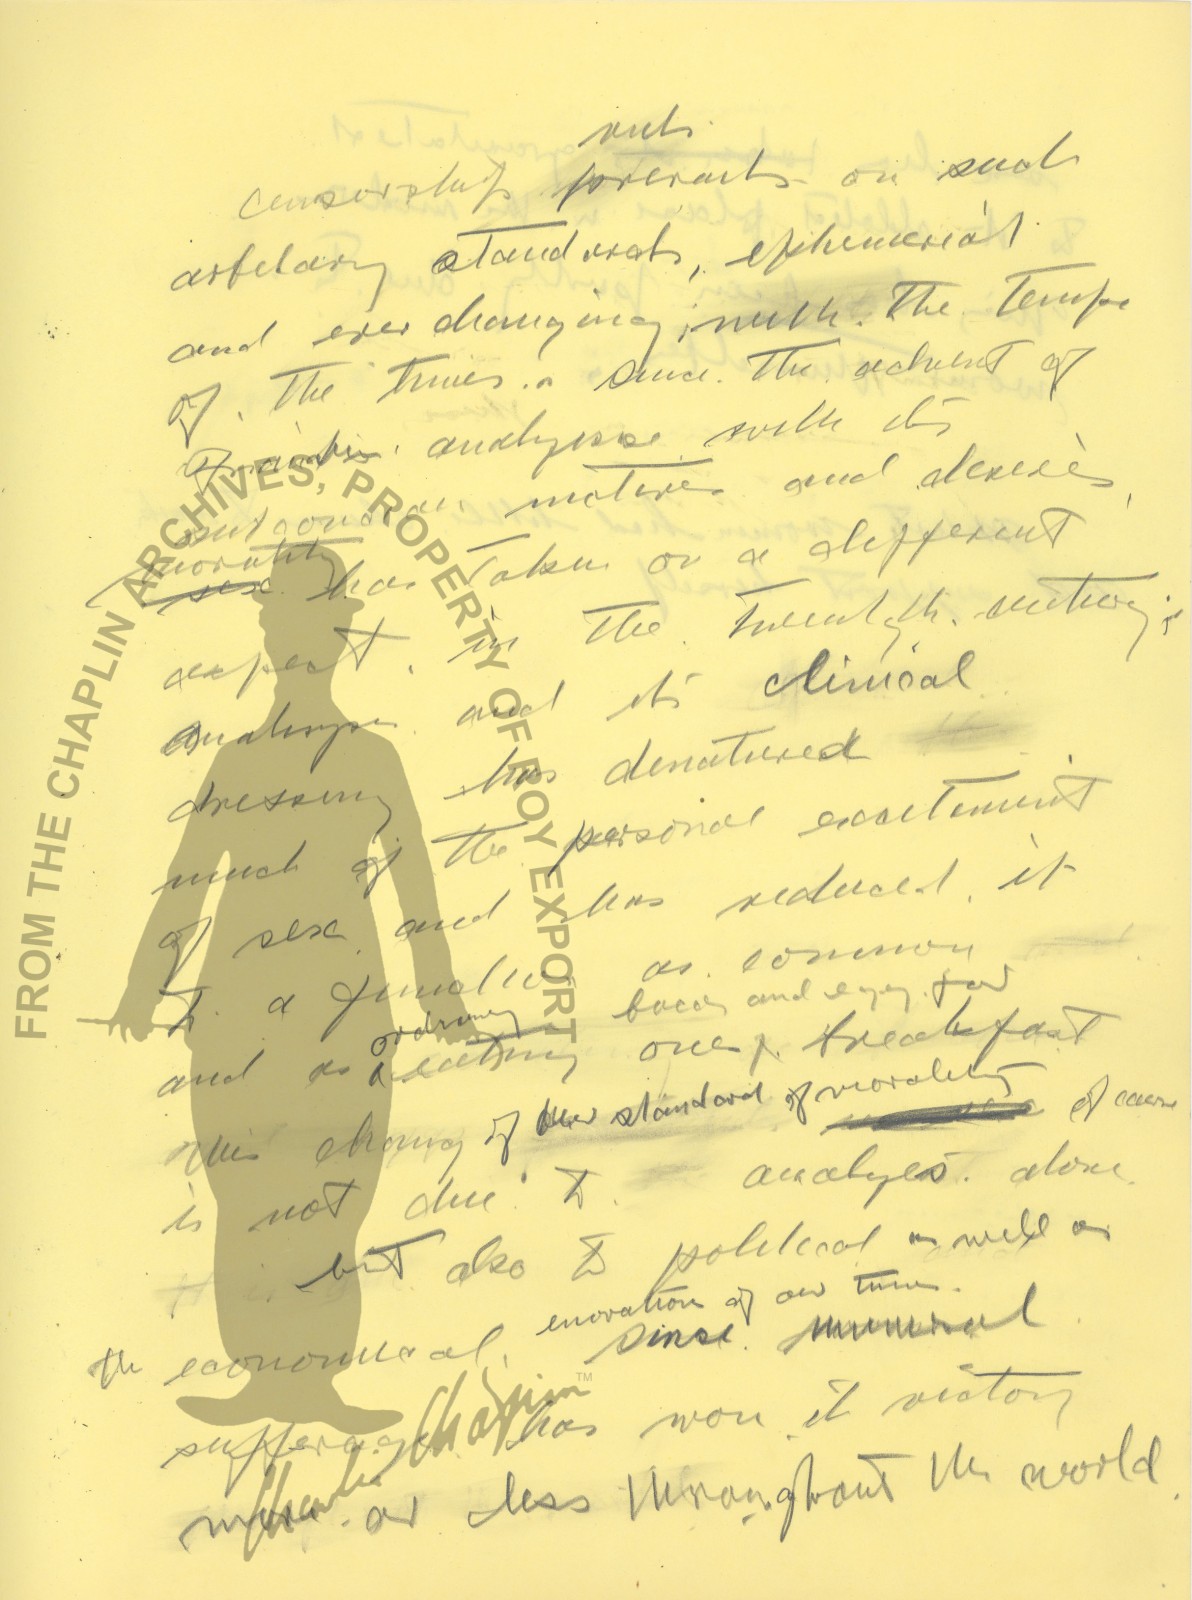 rests
censorship on such
arbitary standards, ephemerial
and ever changing, with the tempo
of the times. Since the advent of
analysis with its
motives and desires,
morality
sex has taken on a different
aspect, in the twentyth century;
analysis and its clinical
dressing has denatured
much of the personal excitement
of sex and has reduced it
to a formula as common
ordinary bacon and eggs for
and as eating ones breakfast
This change of our standard of morality of course
is not due to analyes alone
but also to political as well as
enovations of our times.
the economical, Sinse
sufferage has won it victory
more or less throughout the world.
FROM THE CHAPLIN ARCHIVES, PROPERTY OF ROY EXPORT
Charlie Chaplin™